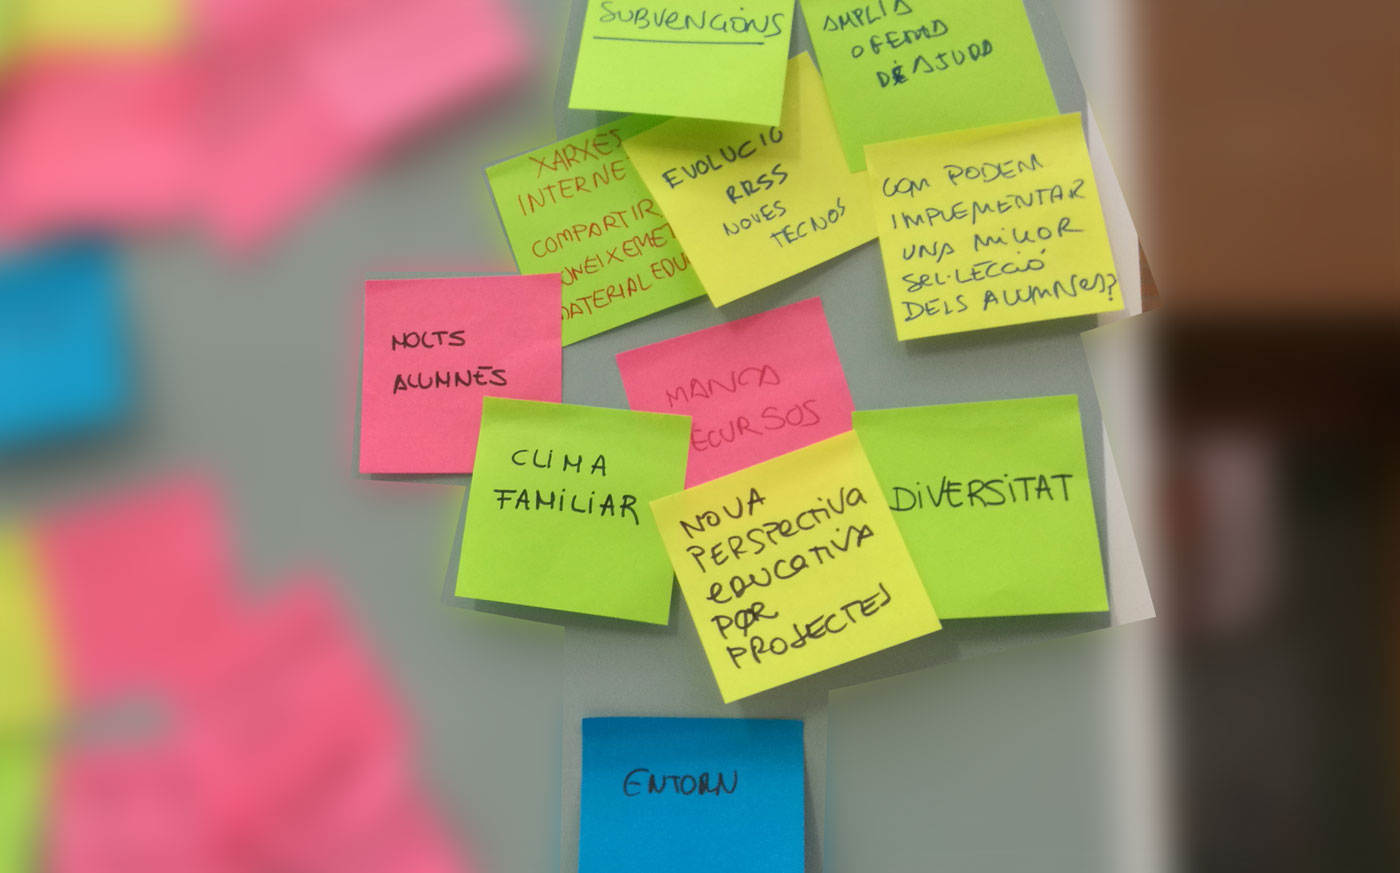 SUBVENCIONS
AMPLIA
OFERTA
D'AJUDA
XARXES
INTERNE
COMPARTIR
ONEIXEMET
MATERIAL EDU
EVOLUCIO
RRSS
NOVES
TECNOS
COM PODEM
IMPLEMENTAR
UNA MILLOR
SEL·LECCIÓ
DELS ALUMNES?
MOLTS
ALUMNES
MANCA
ECURSOS
CLIMA
FAMILIAR
NOVA
PERSPECTIVA
EDUCATIVA
POR
PROJECTES
DIVERSITAT
ENTORN